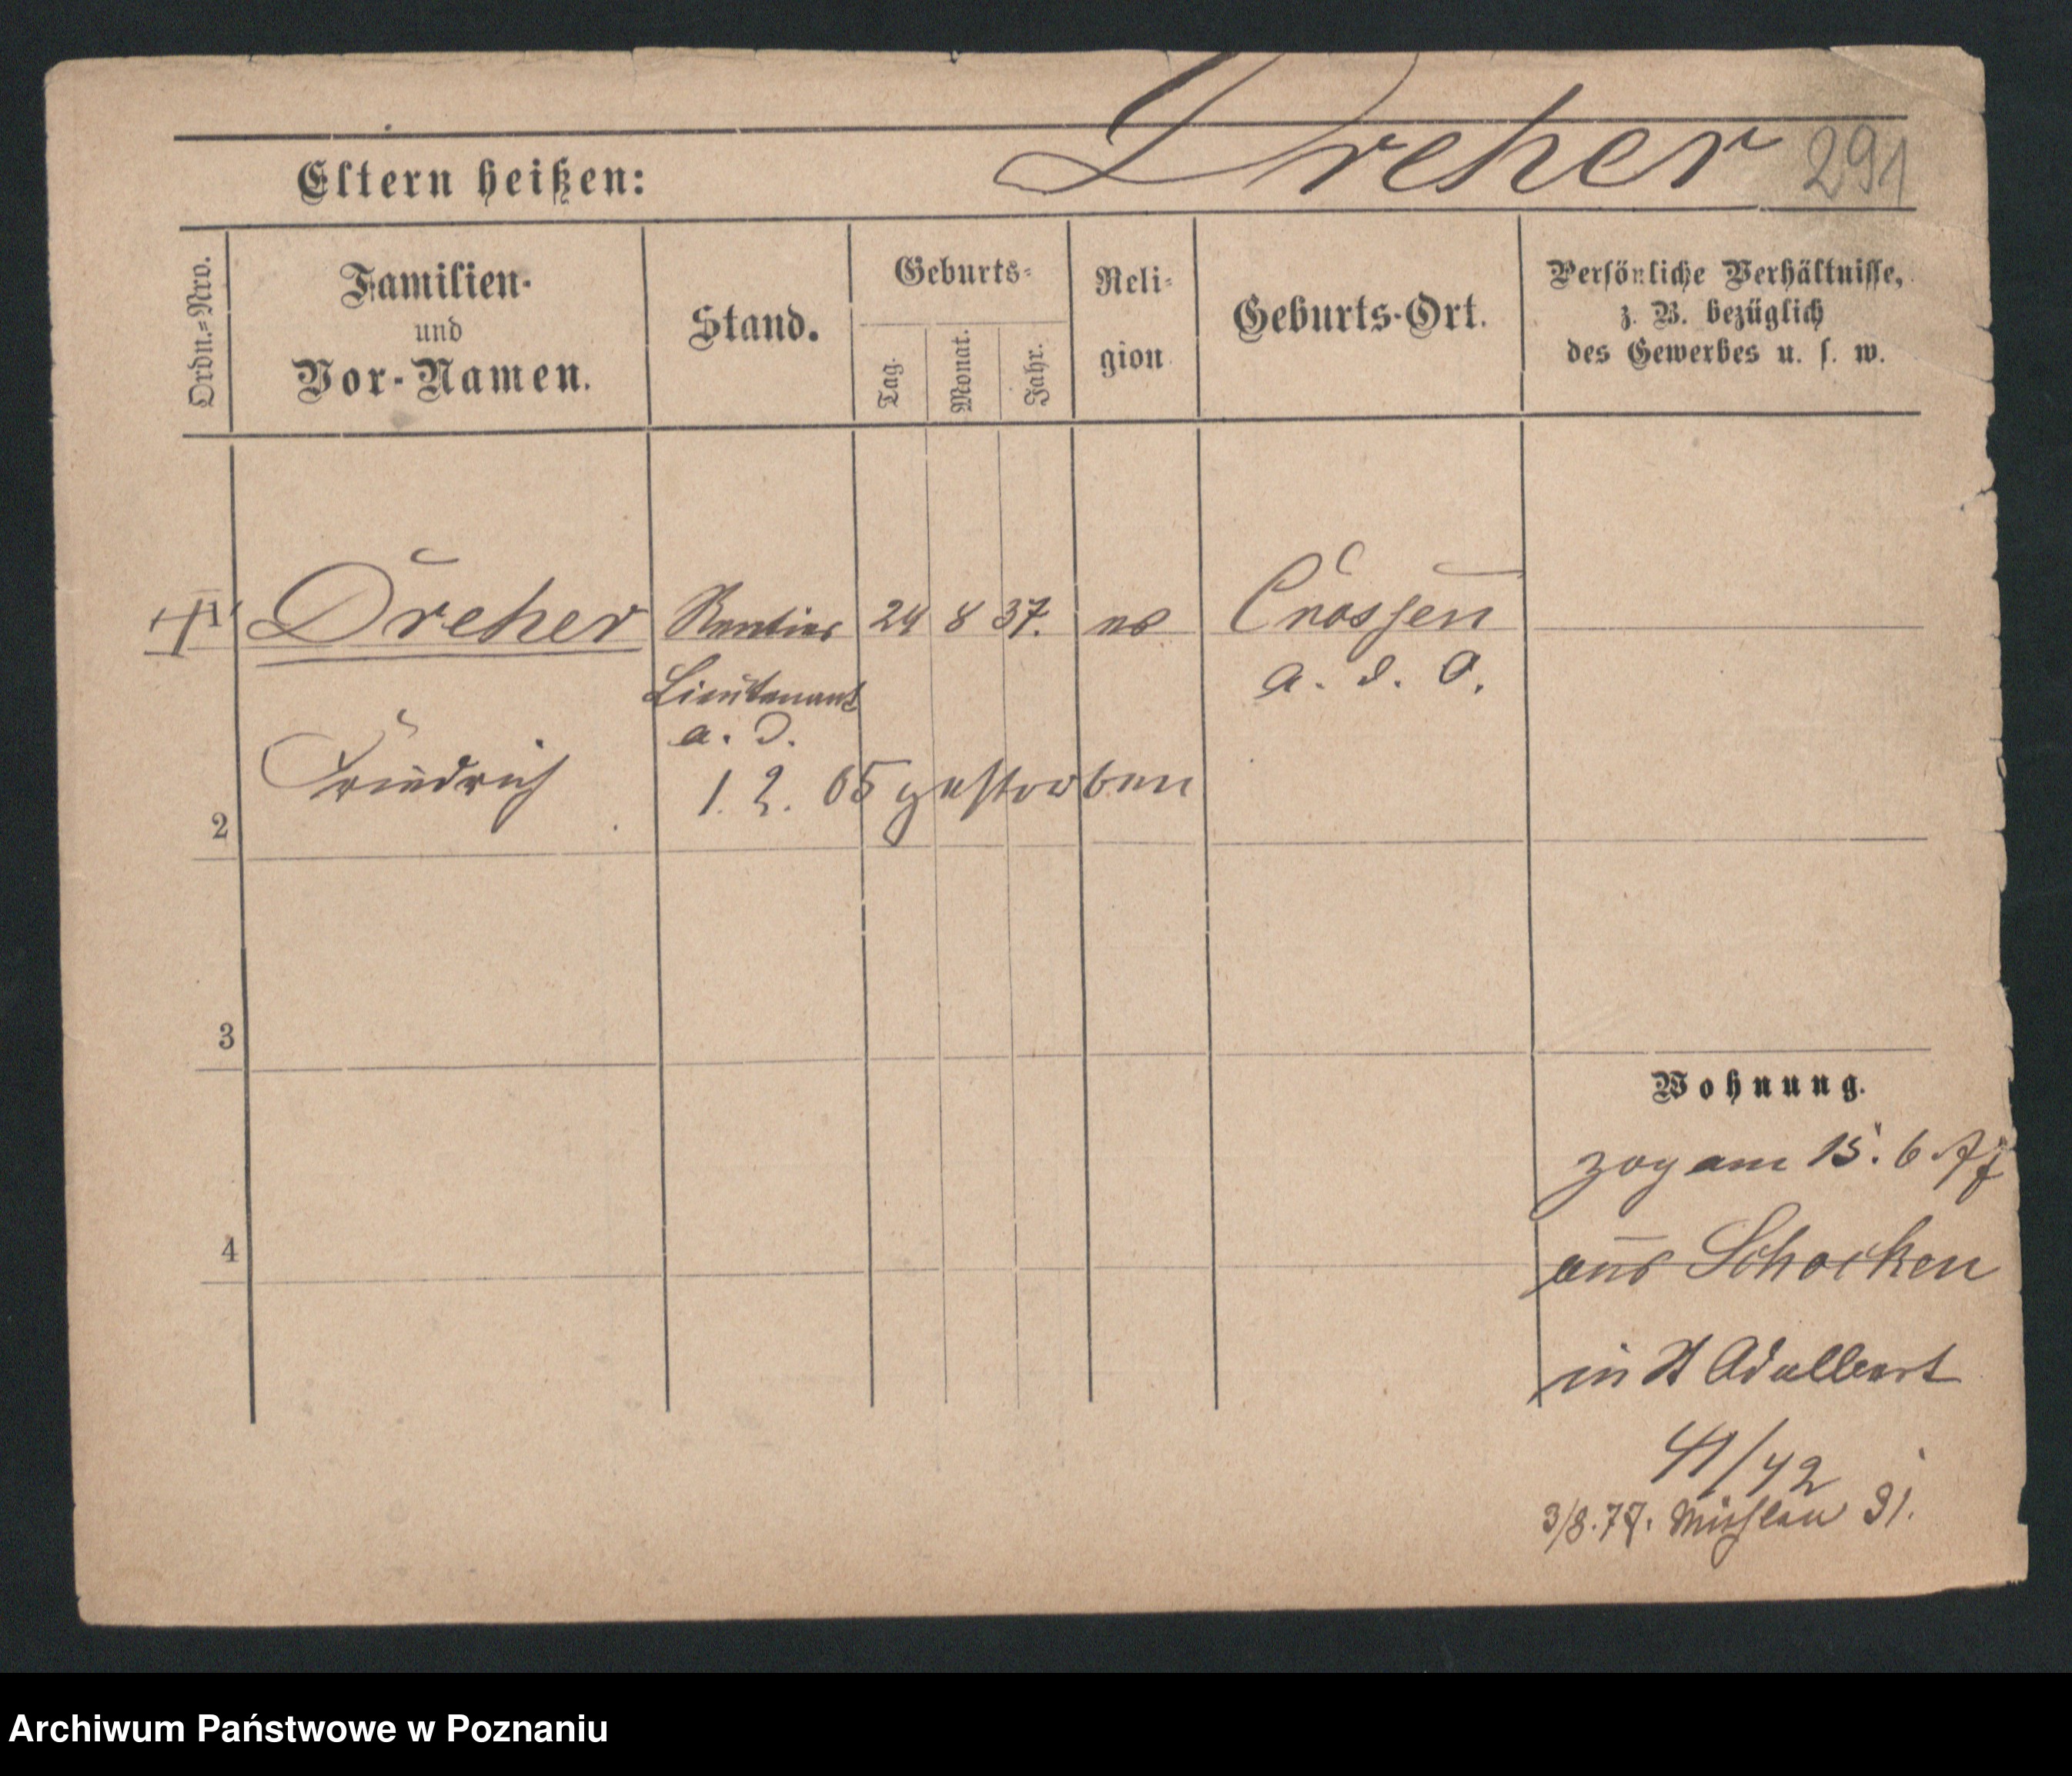 Dreher 291
Eltern heißen:
Ordn.=Nro.
Familien-
und
Vor-Namen.
Stand.
Geburts=
Tag.
Monat.
Jahr.
Reli=
gion
Geburts-Ort.
Persönliche Verhältnisse,
z. B. bezüglich
des Gewerbes u. s. w.
Dreher Rentier 24 8 37. ev Crossen
Lieutenant a. d. O.
a. D.
Friedrich 1. 2. 05 gestorben
2
3
Wohnung.
zog am 15. 6.
4
aus Schocken
in St Adalbert
41/42
3/8. 77. 31.
Archiwum Państwowe w Poznaniu